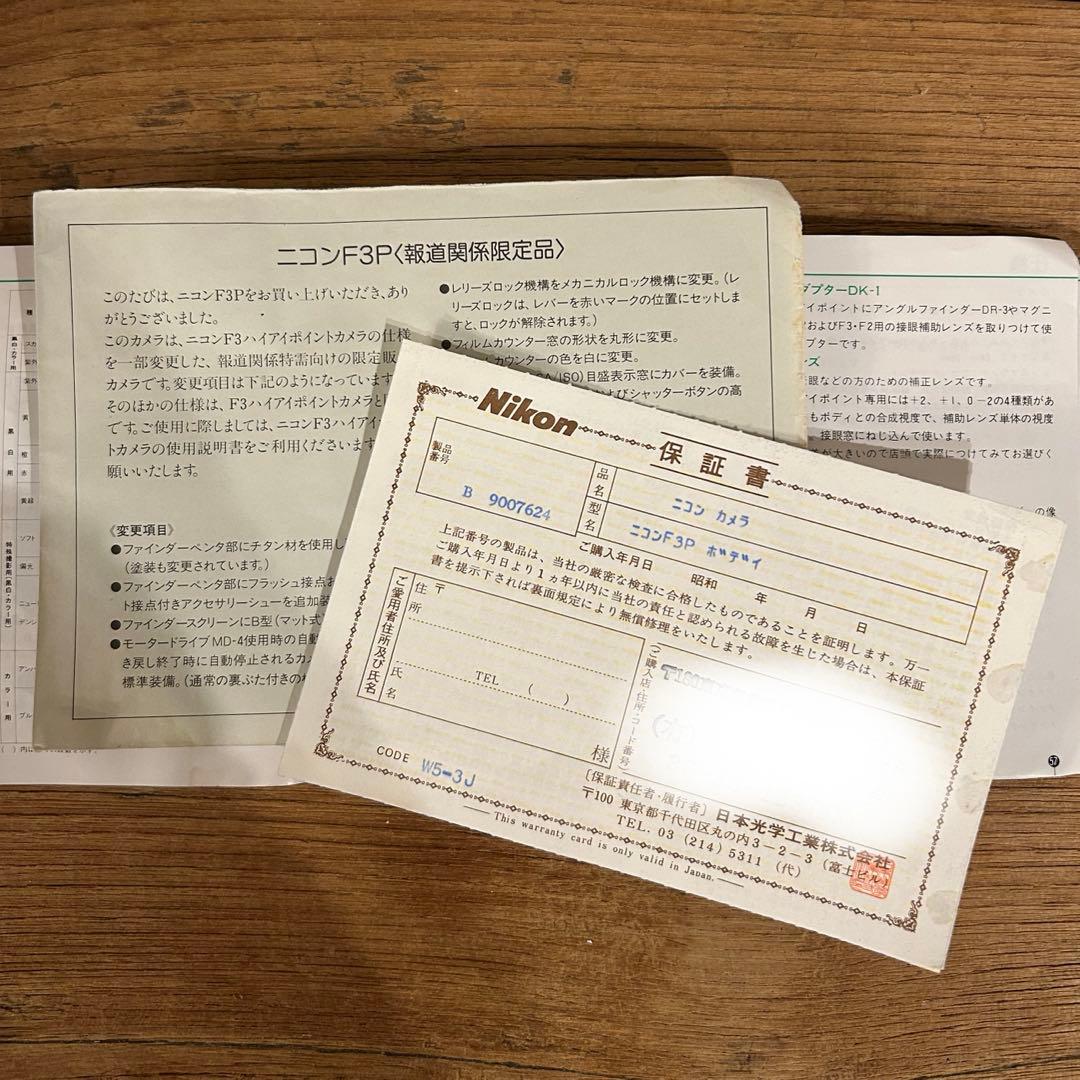 ニコンF3P〈報道関係限定品〉
このたびは、ニコンF3Pをお買い上げいただき、あり
がとうございました。
このカメラは、ニコンF3ハイアイポイントカメラの仕様
を一部変更した、報道関係特需向けの限定販
カメラです。変更項目は下記のようになっています
そのほかの仕様は、F3ハイアイポイントカメラと
です。ご使用に際しましては、ニコンF3ハイアイ
トカメラの使用説明書をご利用ください
願いいたします。
《変更項目》
●ファインダーペンタ部にチタン材を使用し
(塗装も変更されています。)
●ファインダーペンタ部にフラッシュ接点お
ト接点付きアクセサリーシューを追加装
●ファインダースクリーンにB型(マット式
●モータードライブMD-4使用時の自動
き戻し終了時に自動停止されるカ
標準装備。(通常の裏ぶた付きの
●レリーズロック機構をメカニカルロック機構に変更。(レ
リーズロックは、レバーを赤いマークの位置にセットしま
すと、ロックが解除されます。)
●フィルムカウンター窓の形状を丸形に変更。
カウンターの色を白に変更。
/ISO)目盛表示窓にカバーを装備。
びシャッターボタンの高
プターDK-1
イポイントにアングルファインダーDR-3やマグニ
およびF3・F2用の接眼補助レンズを取りつけて使
プターです。
ンズ
眼などの方のための補正レンズです。
イポイント専用には+2、+1、0-2の4種類があ
もボディとの合成視度で、補助レンズ単体の視度
接眼窓にねじ込んで使います。
が大きいので店頭で実際につけてみてお選びく
の像
57
種
黒白・カラー用
スカ
紫外
紫外
黒白用
黄
橙
赤
黄緑
特殊撮影用(黒白・カラー用)
ソフト
偏光
ニュー
デン
カラー用
アンバ
ブル
Nikon
保証書
製品番号
B 9007624
品名
ニコン カメラ
型名
ニコンF3P ボデイ
ご購入年月日 昭和 年 月 日
上記番号の製品は、当社の厳密な検査に合格したものであることを証明します。万一
ご購入年月日より1ヵ年以内に当社の責任と認められる故障を生じた場合は、本保証
書を提示下されば裏面規定により無償修理をいたします。
ご愛用者住所及び氏名
住所
〒
TEL ( )
氏名
様
(ご購入店・住所・コード番号)
CODE W5-3J
〔保証責任者・履行者〕日本光学工業株式会社
〒100 東京都千代田区丸の内3-2-3 (富士ビル)
TEL. 03 (214) 5311 (代)
This warranty card is only valid in Japan.